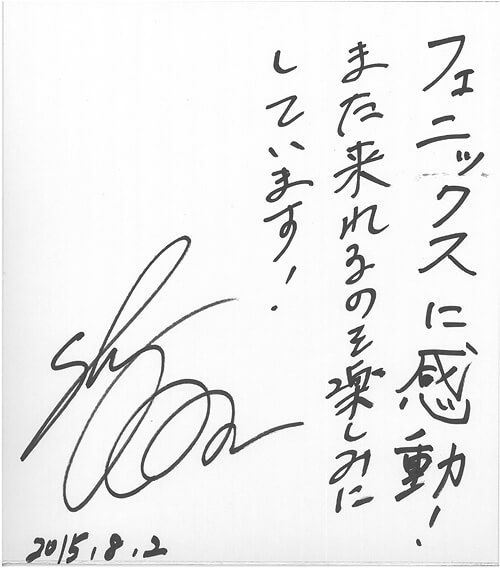 フェニックスに感動!
また来れるのを楽しみに
しています!
2015.8.2